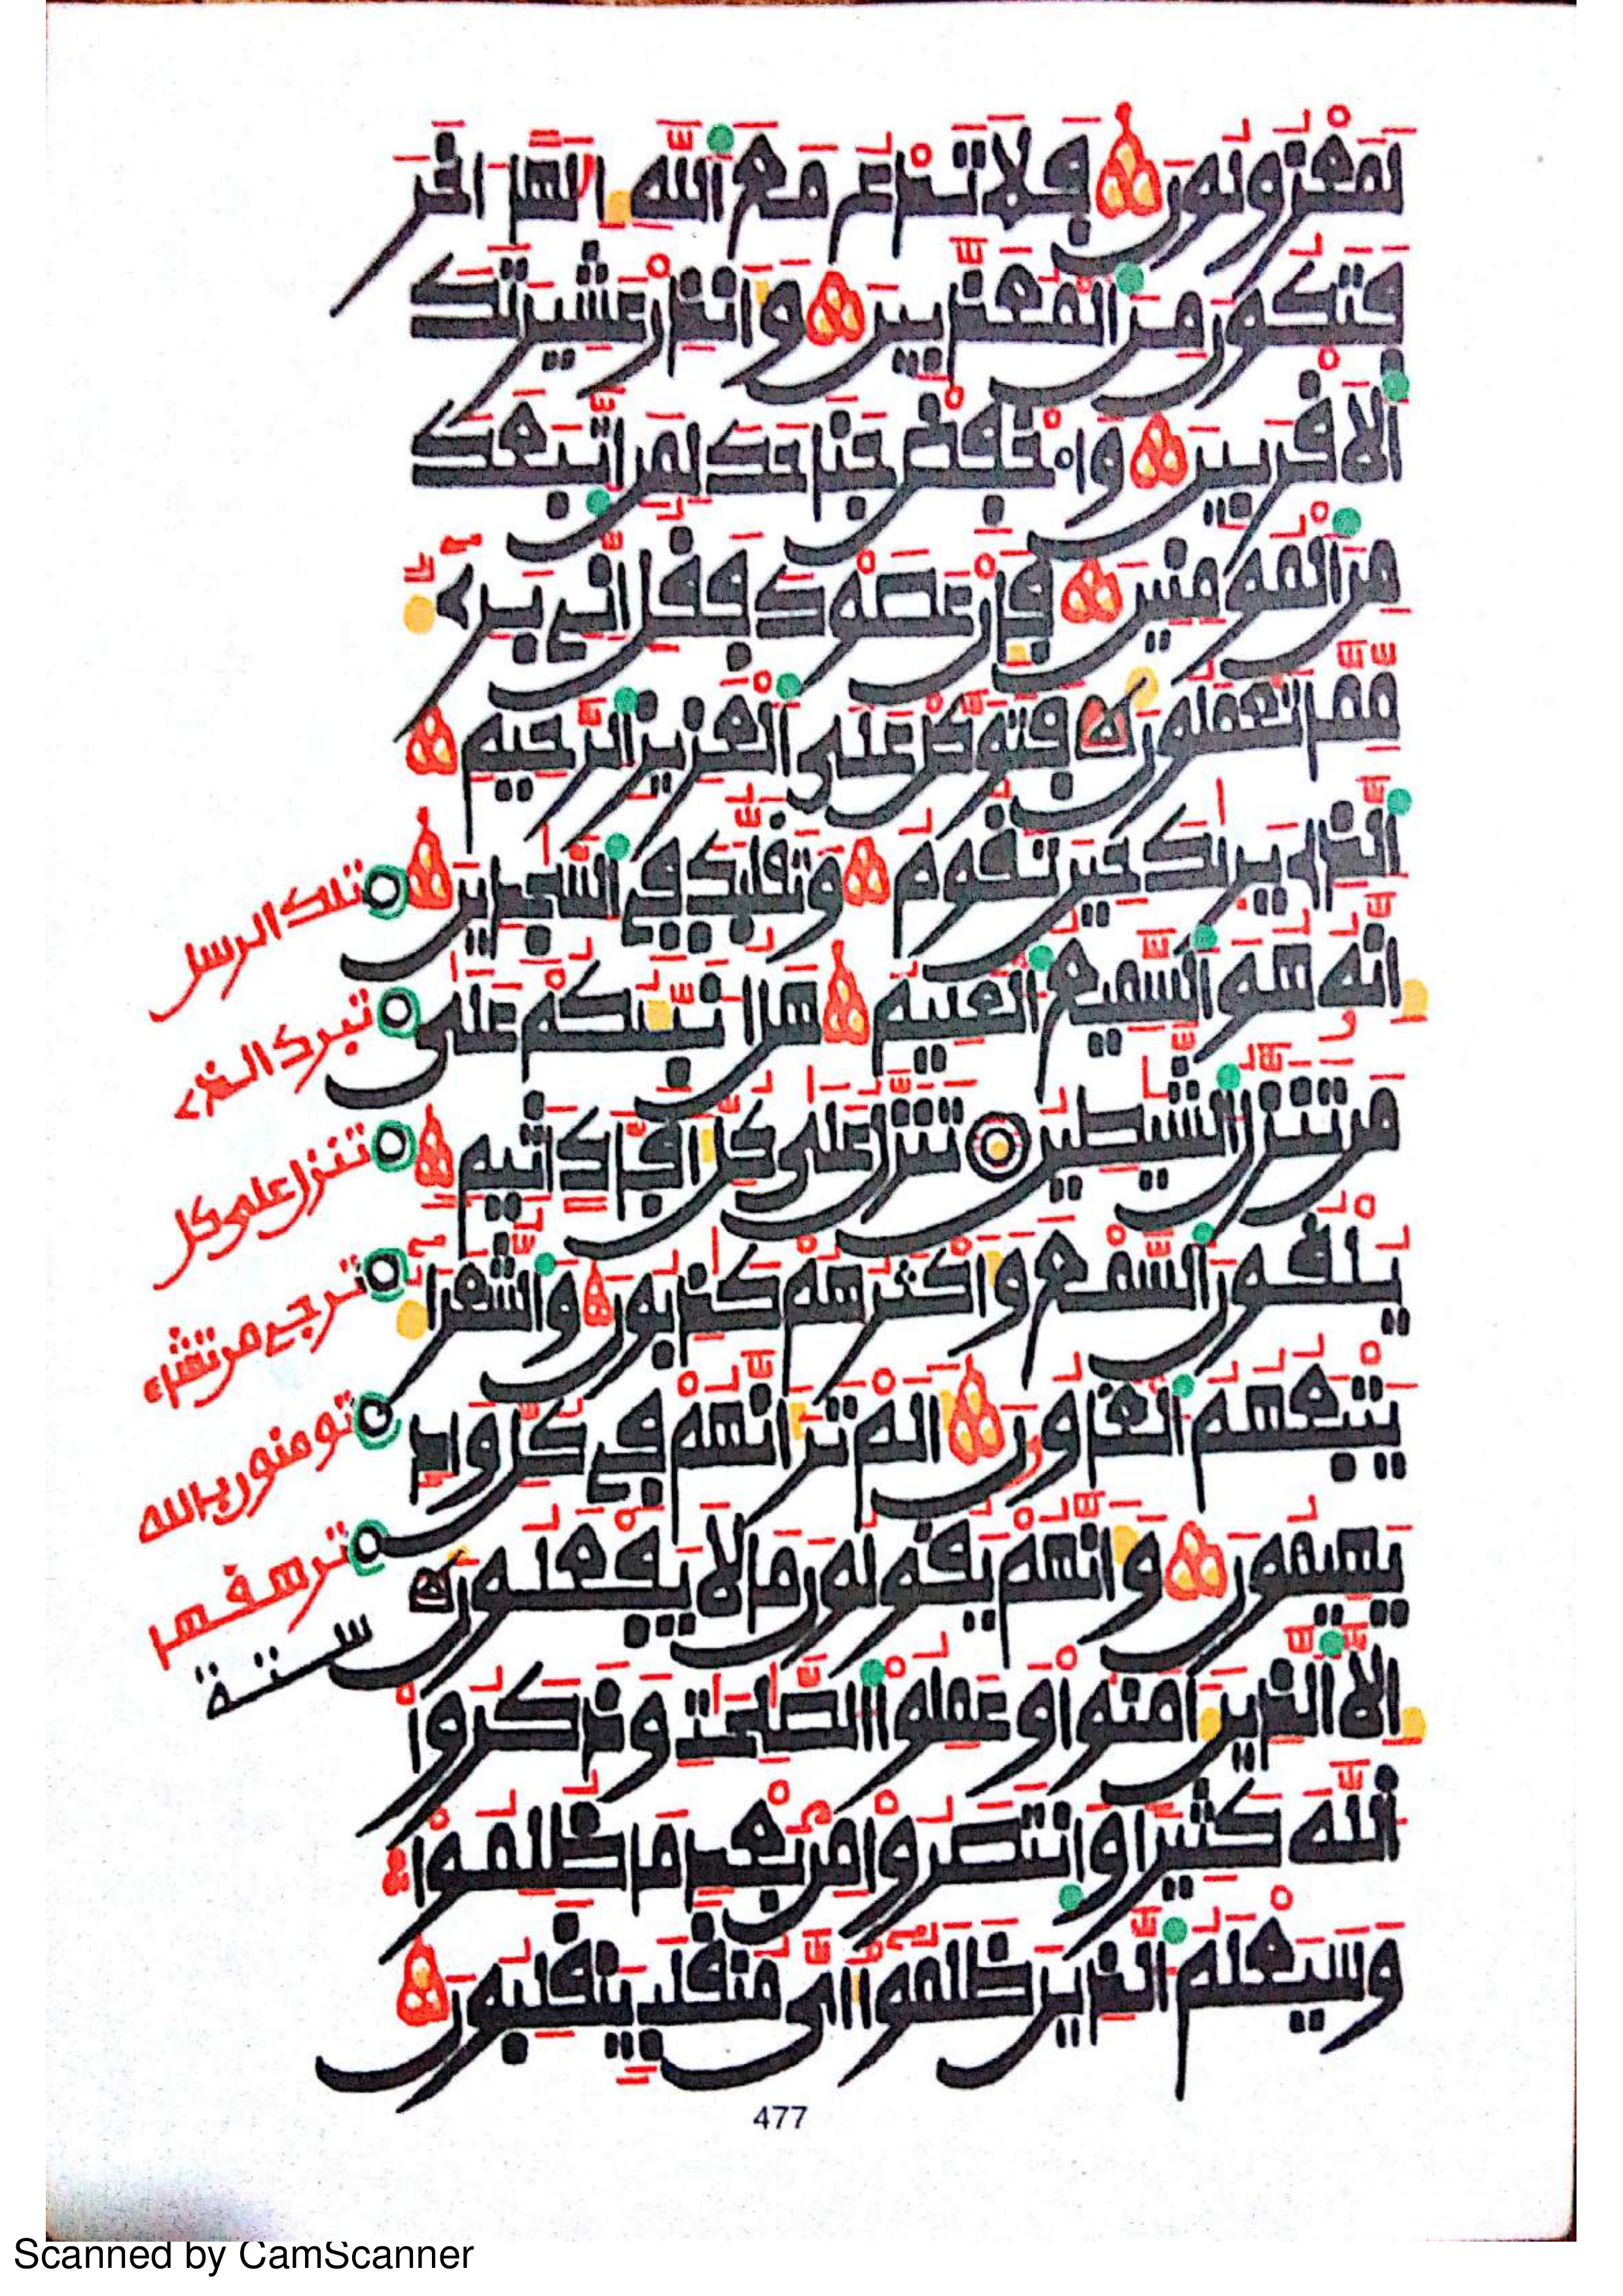 لَمَعْزُولُونَ فَلَا تَدْعُ مَعَ اَ۬للَّهِ إِلَٰهاً اخَرَ
فَتَكُونَ مِنَ اَ۬لْمُعَذَّبِينَ وَأَنذِرْ عَشِيرَتَكَ
اَ۬لَاقْرَبِينَ وَاخْفِضْ جَنَاحَكَ لِمَنِ اِ۪تَّبَعَكَ
مِنَ اَ۬لْمُومِنِينَ فَإِنْ عَصَوْكَ فَقُلِ انِّے بَرِےٓءٌ
مِّمَّا تَعْمَلُونَ فَتَوَكَّلْ عَلَى اَ۬لْعَزِيزِ اِ۬لرَّحِيمِ
اِ۬لذِے يَرَىٰكَ حِينَ تَقُومُ وَتَقَلُّبَكَ فِے اِ۬لسَّٰجِدِينَ
إِنَّهُۥ هُوَ اَ۬لسَّمِيعُ اُ۬لْعَلِيمُ هَلُ ا۟نَبِّئُكُمْ عَلَىٰ
مَن تَنَزَّلُ اُ۬لشَّيَٰطِينُ تَنَزَّلُ عَلَىٰ كُلِّ أَفَّاكٍ اثِيمٍ
يُلْقُونَ اَ۬لسَّمْعَ وَأَكْثَرُهُمْ كَٰذِبُونَ وَالشُّعَرَآءُ
يَتْبَعُهُمُ اُ۬لْغَاوُۥنَ أَلَمْ تَرَ أَنَّهُمْ فِے كُلِّ وَادٍ
يَهِيمُونَ وَأَنَّهُمْ يَقُولُونَ مَا لَا يَفْعَلُونَ
إِلَّا اَ۬لذِينَ ءَامَنُواْ وَعَمِلُواْ اُ۬لصَّٰلِحَٰتِ وَذَكَرُواْ
اُ۬للَّهَ كَثِيراً وَانتَصَرُواْ مِنۢ بَعْدِ مَا ظُلِمُواْ
وَسَيَعْلَمُ اُ۬لذِينَ ظَلَمُواْ أَيَّ مُنقَلَبٍ يَنقَلِبُونَ
تلك الرسل
تبرك الذے
تنزل على كل
ترجے من تشاء
تومنون بالله
ترهفهما
ستة
477
Scanned by CamScanner